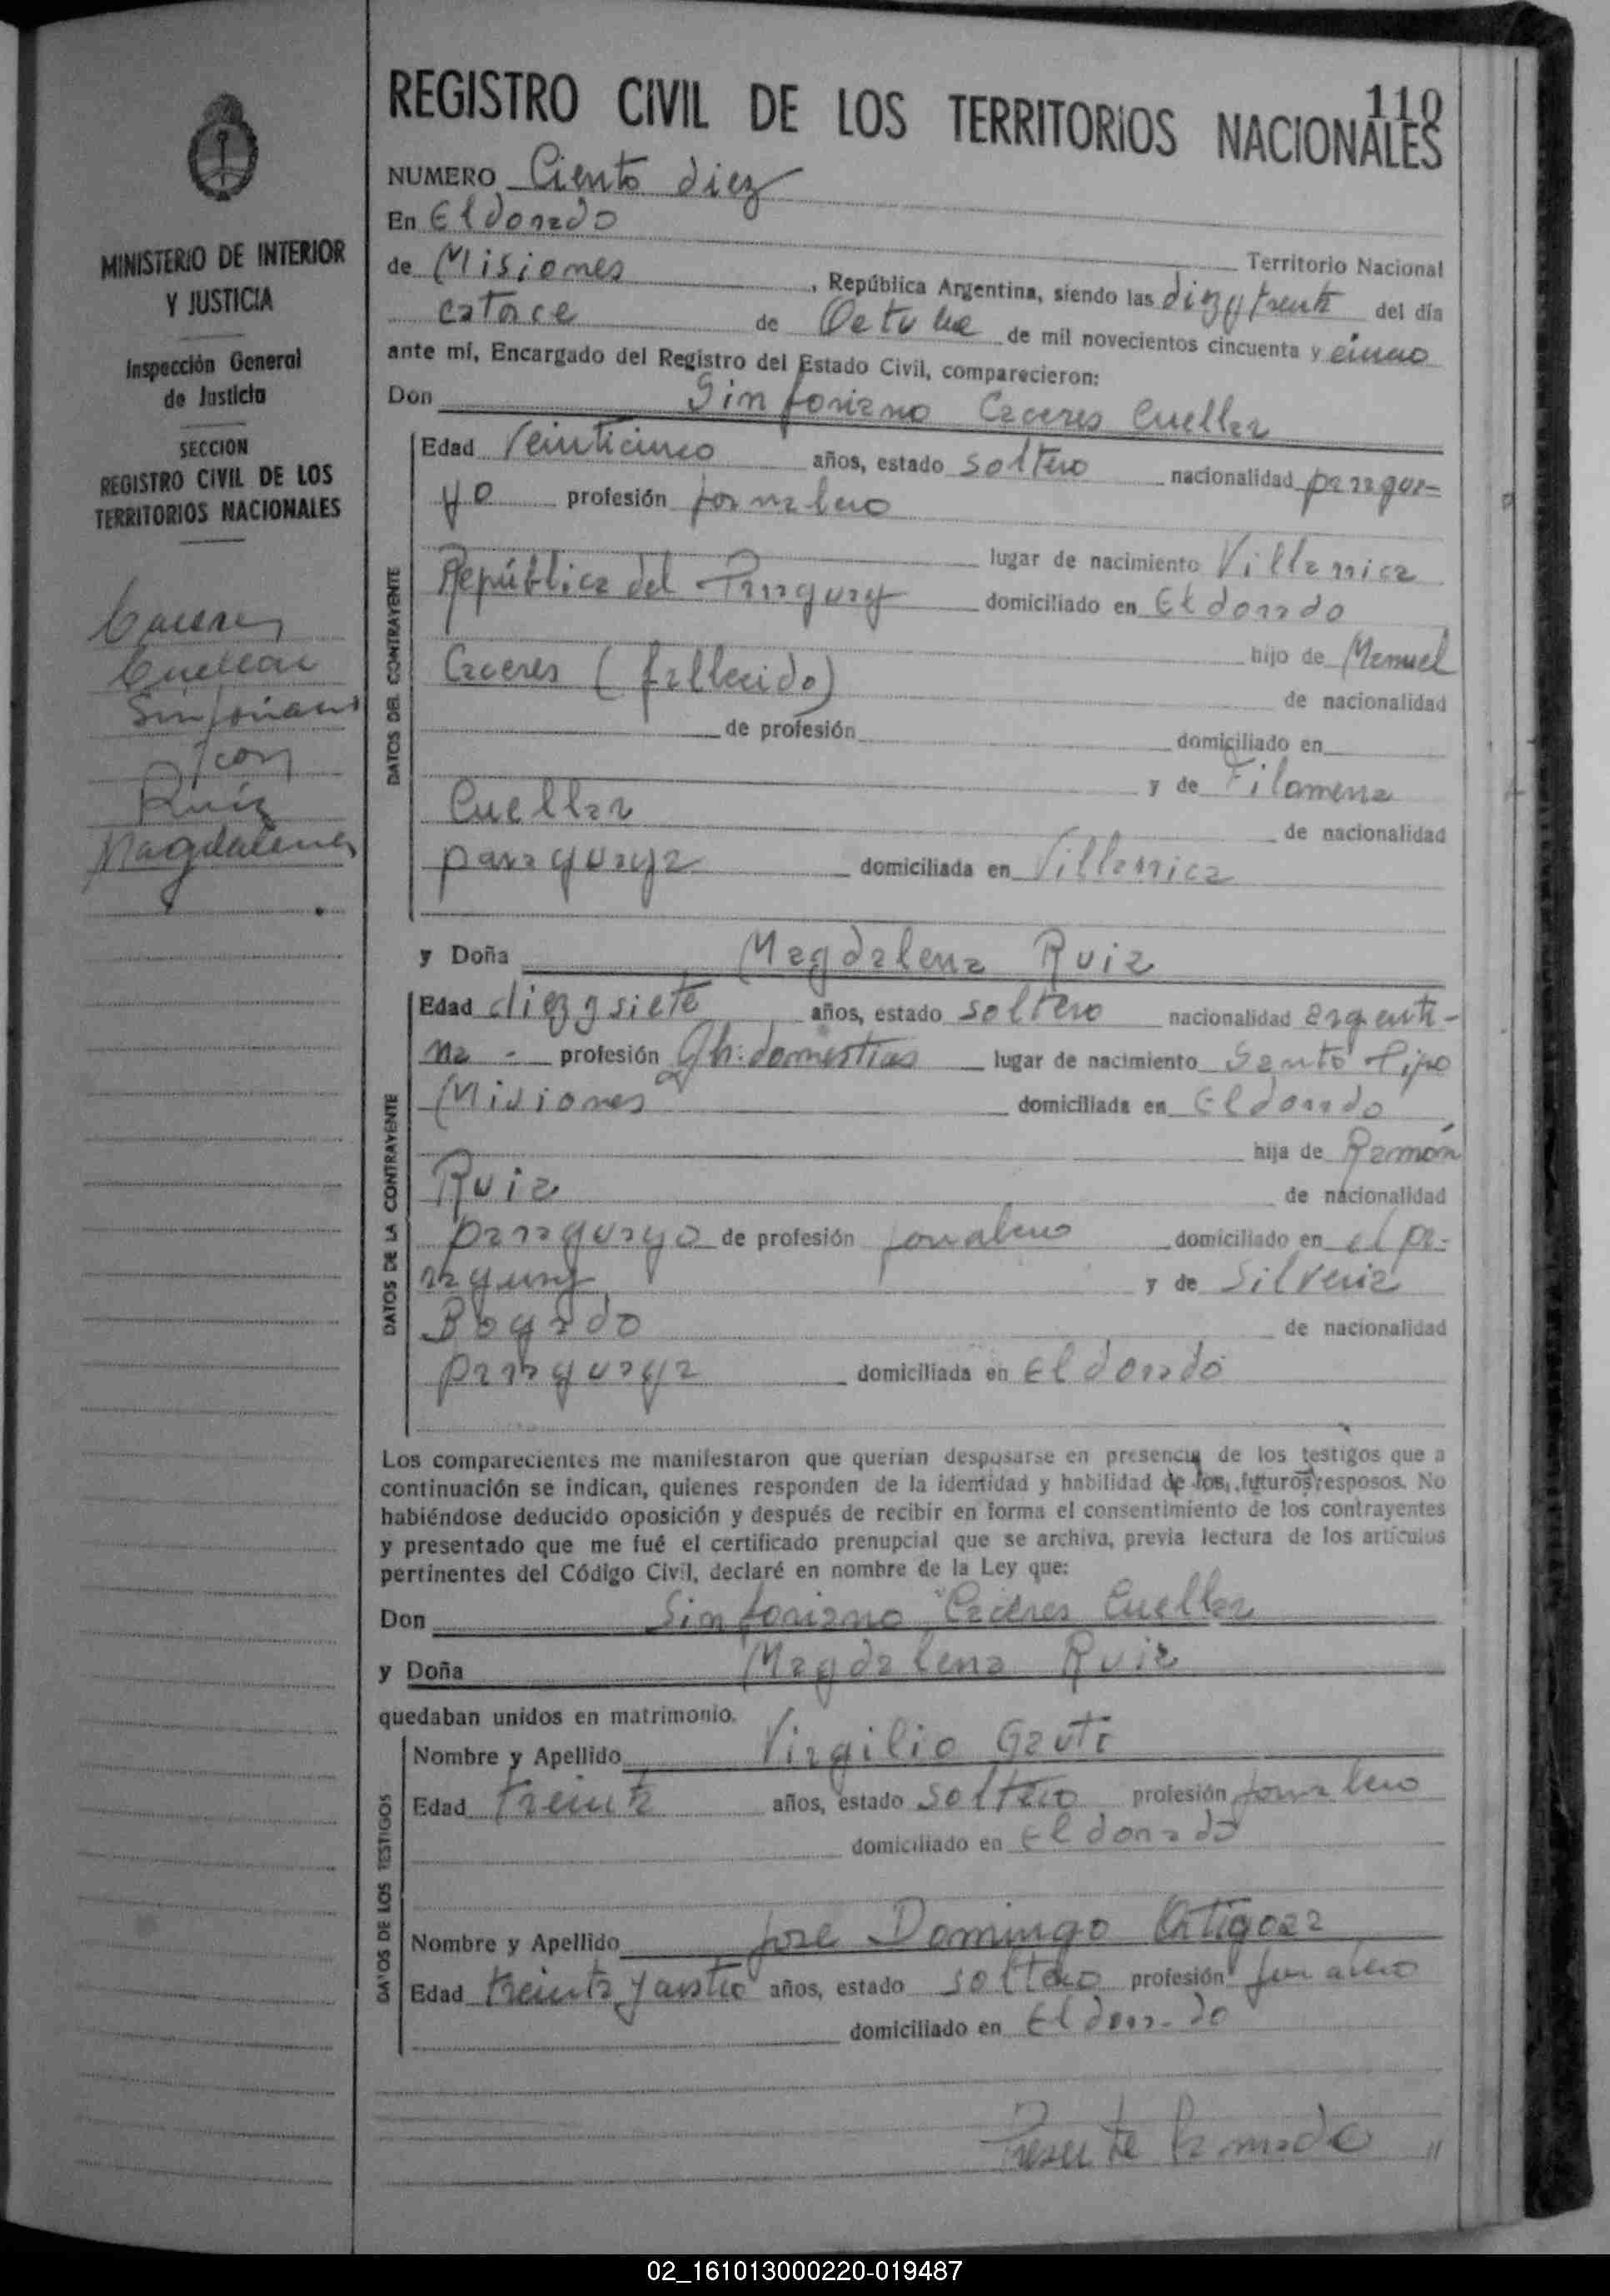 110
REGISTRO CIVIL DE LOS TERRITORIOS NACIONALES
NUMERO Ciento diez
En Eldorado
Territorio Nacional
de Misiones, República Argentina, siendo las diez y treinta del día
catorce de Octubre de mil novecientos cincuenta y cinco
ante mí, Encargado del Registro del Estado Civil, comparecieron:
Don Sinforiano Caceres Cuellar
Edad Veinticinco años, estado soltero nacionalidad paragua-
yo profesión jornalero
lugar de nacimiento Villarrica
República del Paraguay domiciliado en Eldorado
hijo de Manuel
Caceres (fallecido)
de nacionalidad
de profesión domiciliado en
y de Filomena
Cuellar
de nacionalidad
paraguaya domiciliada en Villarrica
DATOS DEL CONTRAYENTE
y Doña Magdalena Ruiz
Edad diez y siete años, estado soltero nacionalidad argenti-
na - profesión Qh: domesticos lugar de nacimiento Santo Pipo
Misiones domiciliada en Eldorado
hija de Ramón
Ruiz de nacionalidad
paraguayo de profesión jornalero domiciliado en el pa-
raguay y de Silveria
Bogado de nacionalidad
paraguaya domiciliada en Eldorado
DATOS DE LA CONTRAYENTE
Los comparecientes me manifestaron que querían desposarse en presencia de los testigos que a
continuación se indican, quienes responden de la identidad y habilidad de los futuros esposos. No
habiéndose deducido oposición y después de recibir en forma el consentimiento de los contrayentes
y presentado que me fué el certificado prenupcial que se archiva, previa lectura de los artículos
pertinentes del Código Civil, declaré en nombre de la Ley que:
Don Sinforiano Caceres Cuellar
y Doña Magdalena Ruiz
quedaban unidos en matrimonio.
Nombre y Apellido Virgilio Gauto
Edad treinta años, estado soltero profesión jornalero
domiciliado en Eldorado
Nombre y Apellido Jose Domingo Ortigoza
Edad treinta y cuatro años, estado soltero profesión jornalero
domiciliado en Eldorado
DATOS DE LOS TESTIGOS
Presente la madre "
MINISTERIO DE INTERIOR
Y JUSTICIA
Inspección General
de Justicia
SECCION
REGISTRO CIVIL DE LOS
TERRITORIOS NACIONALES
Caceres
Cuellar
Sinforiano
con
Ruiz
Magdalena
02_161013000220-019487